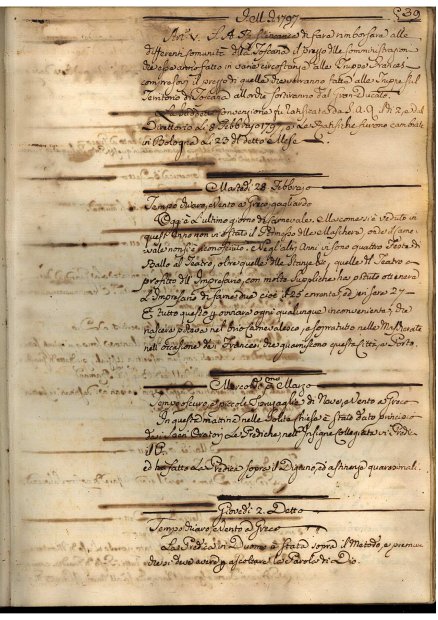 Dell' 1797. 539
Art.º V. S. A. R. s'incarica di fara rimborsare alle
differenti Comunità della Toscana il prezzo delle somministrazion
che esse anno fatto in varie circostanze alle Truppe Frances.
compresovi il prezzo di quelle che verranno fatte alle Truppe sul
Territorio di Toscana allorche sortiranno dal Gran Ducato.
La Convenzione fu ratificata da S. A. R. e dal
Direttorio li 8 Febbraio 1797, e le Ratifiche furono cambiate
in Bologna li 23 detto Mese
Martedì 28 Febbrajo
Tempo vario, e Vento a Greco gagliardo
Oggi è l'ultimo giorno di Carnevale. Mascherari si è veduto in
quest'Anno non ostante il Permesso della Maschera, onde il Carne-
vale non si è riconosciuto. Negl'altri Anni vi sono quattro Feste di
Ballo al Teatro, oltre quelle delle Stanze, e quelle del Teatro a
profitto dell' Impresario, con molte Suppliche ha potuto ottenere
L'Impresario di farne due cioè il 26 corrente, ed jeri sera 27
E tutto questo per ovviare ogni qualunque inconveniente, che
nascer potesse nel brio carnevalesco, e sopratutto nelle Mascherate
nell'occasione dei Francesi che guarniscono questa Città, e Porto.
Mercoledì pmo Marzo
Tempo oscuro e piccole di Neve, e Vento a Greco
In questa mattina nelle solite Chiese è stato dato principio
dai Sacri Oratori le Prediche, e nell' Insigne Collegiata vi Predi-
il P.
ed ha fatto la Predica sopra il Digiuno, ed astinenza quaresimale.
Giovedì 2. Detto
Tempo chiaro, e Vento a Greco
La Predica in Duomo è stata sopra il Metodo, e premura
che si deve avere di ascoltare la Parola di Dio.